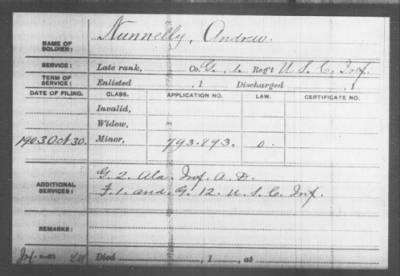 NAME OF SOLDIER: Nunnelly, Andrew.
SERVICE: Late rank, Co. G, 1. Reg't U.S.C. Inf.
TERM OF SERVICE: Enlisted , 1 Discharged , 1
DATE OF FILING. CLASS. APPLICATION NO. LAW. CERTIFICATE NO.
Invalid,
Widow,
1903 Oct 30. Minor, 793.893. 0.
ADDITIONAL SERVICES: G. 2. Ala. Inf. A.D.
F. 1. and G. 12. U.S.C. Inf.
REMARKS:
Died , 1 , at